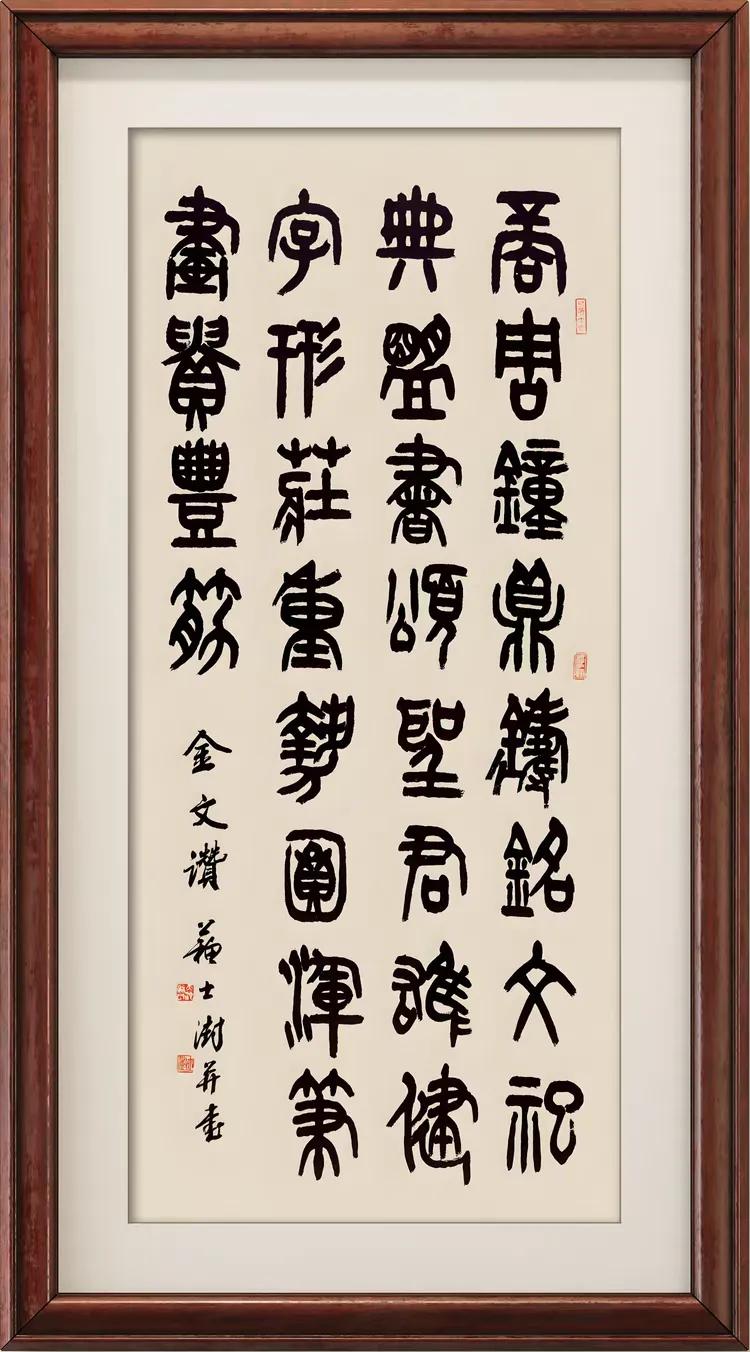 商周鐘鼎鑄銘文祀
典盟書頌聖君雄健
字形莊重勢圓渾筆
畫質豐筋
金文讚
蘇士澍并書